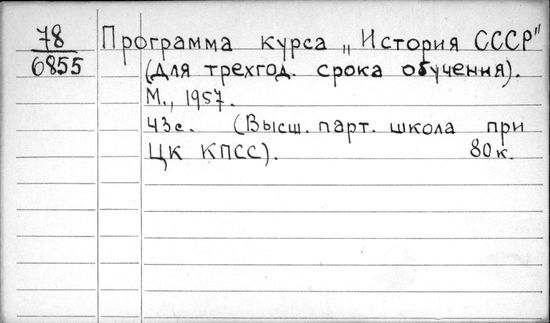 78 Программа курса „История СССР"
6855 (для трехгод. срока обучения).
М., 1957.
43с. (Высш. парт. школа при
ЦК КПСС). 80к.